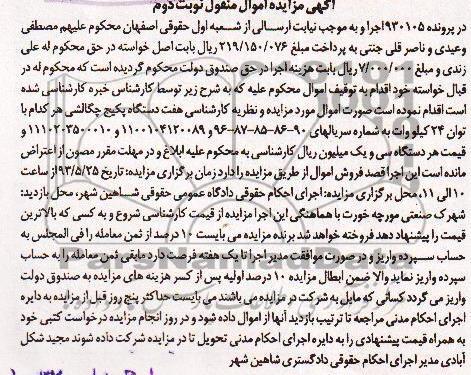 آگهی مزایده اموال منقول نوبت دوم
در پرونده ۹۳۰۱۰۵ اجرا و به موجب نیابت ارسالی از شعبه اول حقوقی اصفهان محکوم علیهم مصطفی
وعیدی و ناصر قلی جنتی به پرداخت مبلغ ۲۱۹/۱۵۰/۰۷۶ ریال بابت اصل خواسته در حق محکوم له علی
زندی و مبلغ ۷/۰۰۰/۰۰۰ ریال بابت هزینه اجرا در حق صندوق دولت محکوم گردیده است که محکوم له در
قبال خواسته خود اقدام به توقیف اموال محکوم علیه که به شرح زیر توسط کارشناس خبره کارشناسی شده
است اقدام نموده است صورت اموال مورد مزایده و نظریه کارشناسی هفت دستگاه پکیج چگالشی هر کدام با
توان ۲۴ کیلو وات به شماره سریالهای ۹۰-۸۶-۸۵-۸۷-۹۶ و ۱۱۰۰۱۰۴۱۲۰۰۸۹ و ۱۱۱۰۲۰۲۳۵۰۰۰۱۰
قیمت هر دستگاه سی و یک میلیون ریال کارشناسی به محکوم علیه ابلاغ و در مهلت مقرر مصون از اعتراض
مانده است این اجرا قصد فروش اموال از طریق مزایده را دارد زمان برگزاری مزایده: تاریخ ۹۳/۵/۲۵ از ساعت
۱۰ الی ۱۱، محل برگزاری مزایده: اجرای احکام حقوقی دادگاه عمومی حقوقی شاهین شهر، محل بازدید:
شهرک صنعتی مورچه خورت با هماهنگی این اجرا مزایده از قیمت کارشناسی شروع و به کسی که بالاترین
قیمت را پیشنهاد دهد فروخته خواهد شد برنده مزایده می بایست ۱۰ درصد از ثمن معامله را فی المجلس به
حساب سپرده واریز و در صورت موافقت مدیر اجرا تا یک هفته فرصت دارد مابقی ثمن معامله را به حساب
سپرده واریز نماید والا ضمن ابطال مزایده ۱۰ درصد اولیه پس از کسر هزینه های مزایده به صندوق دولت
واریز می گردد کسانی که مایل به شرکت در مزایده می باشند می بایست حداکثر پنج روز قبل از مزایده به دایره
اجرای احکام مدنی مراجعه تا ترتیب بازدید آنها از اموال داده شود و در روز انجام مزایده درخواست کتبی خود
به همراه قیمت پیشنهادی را به دایره اجرای احکام مدنی تحویل تا در مزایده شرکت داده شوند مجید شکل
آبادی مدیر اجرای احکام حقوقی دادگستری شاهین شهر